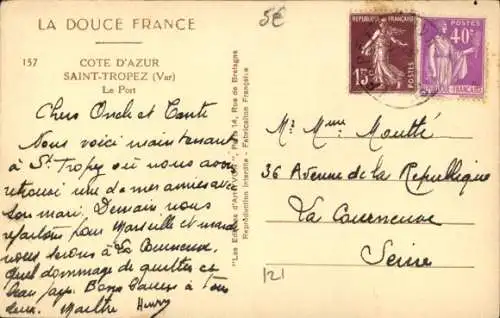 LA DOUCE FRANCE
5€
157
COTE D'AZUR
SAINT-TROPEZ (Var)
Le Port
Chers Oncle et Tante
Nous voici maintenant
à St Tropez où nous avons
retrouvé une de mes amies avec
son mari. Demain nous
repartons pour Marseille et mardi
nous serons à La Courneuve
Quel dommage de quitter ce
beau pays. Bons baisers à tous
deux.
"Les Editions d'Art 14, Rue de Bretagne
Reproduction Interdite - Fabrication Française
REPUBLIQUE FRANÇAISE
15c
POSTES
POSTES
40c
REPUBLIQUE FRANÇAISE
Mr Mme
36 Avenue de la République
La Courneuve
Seine
121